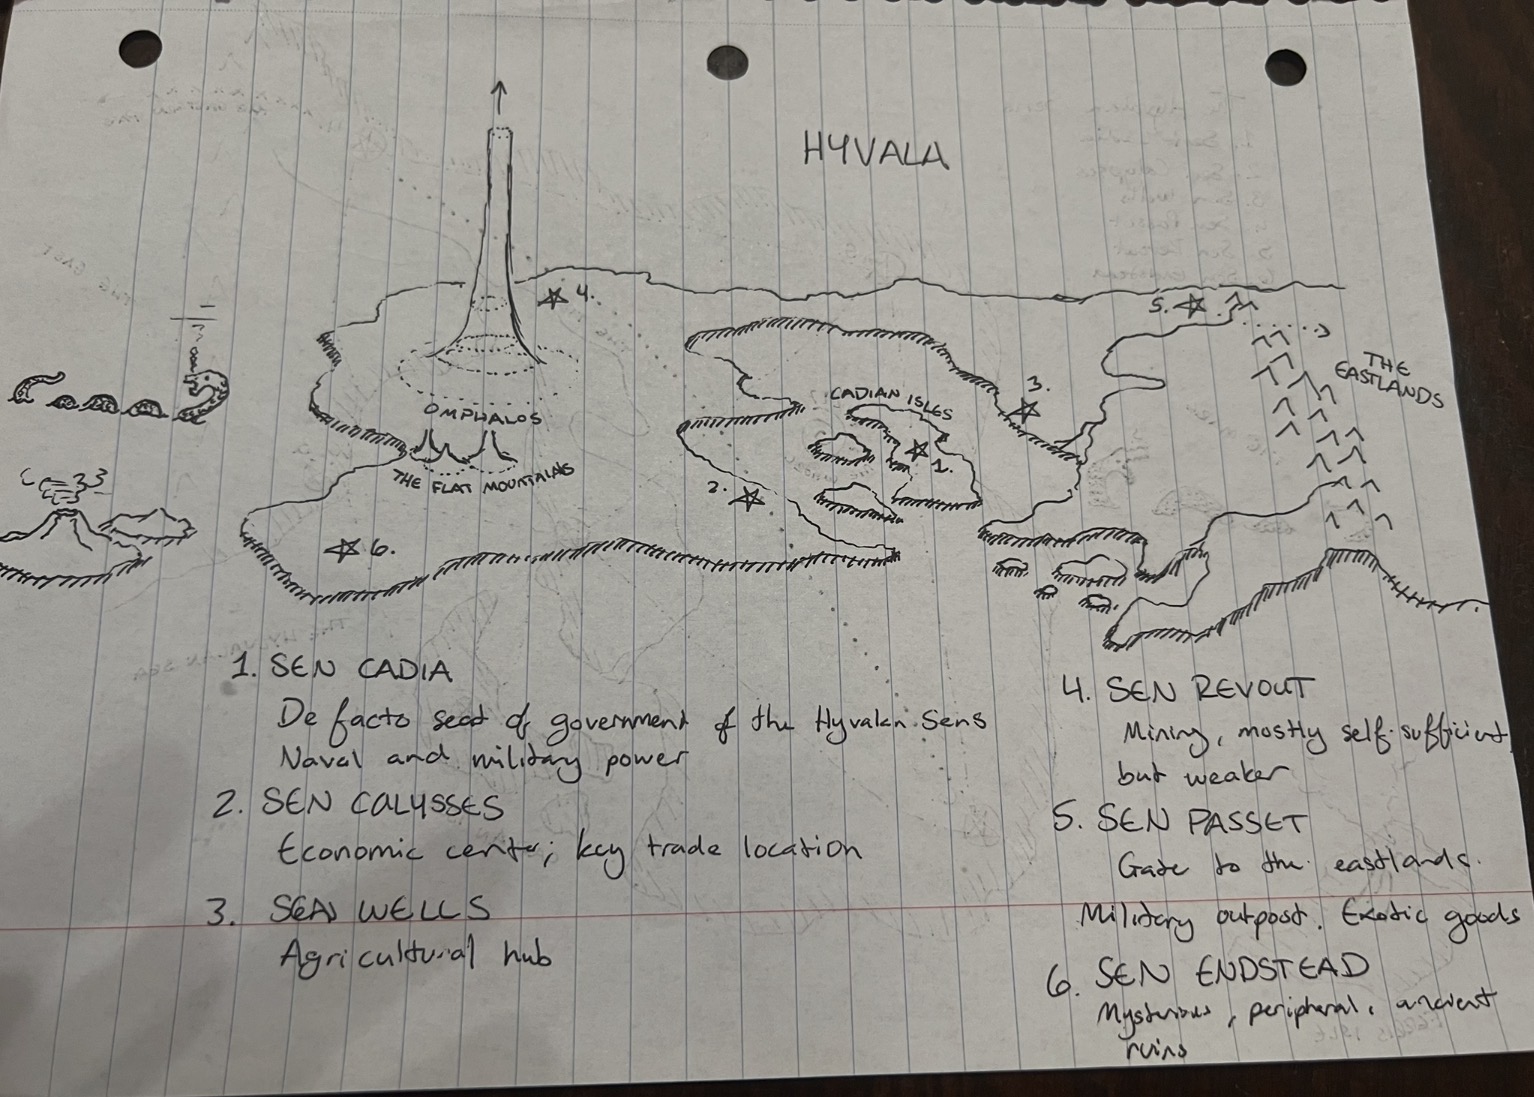 HYVALA
4.
5.
THE
EASTLANDS
3.
CADIAN ISLES
OMPHALOS
1.
THE FLAT MOUNTAINS
2.
6.
1. SEN CADIA
De facto seat of government of the Hyvalan Sens
Naval and military power
2. SEN CALYSSES
Economic center; key trade location
3. SEN WELLS
Agricultural hub
4. SEN REVOUT
Mining, mostly self-sufficient
but weaker
5. SEN PASSET
Gate to the eastlands.
Military outpost. Exotic goods
6. SEN ENDSTEAD
Mysterious, peripheral, ancient
ruins